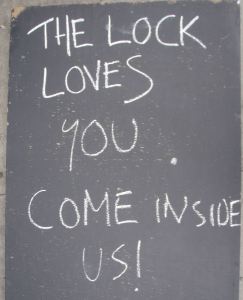 THE LOCK
LOVES
YOU
COME INSIDE
US!